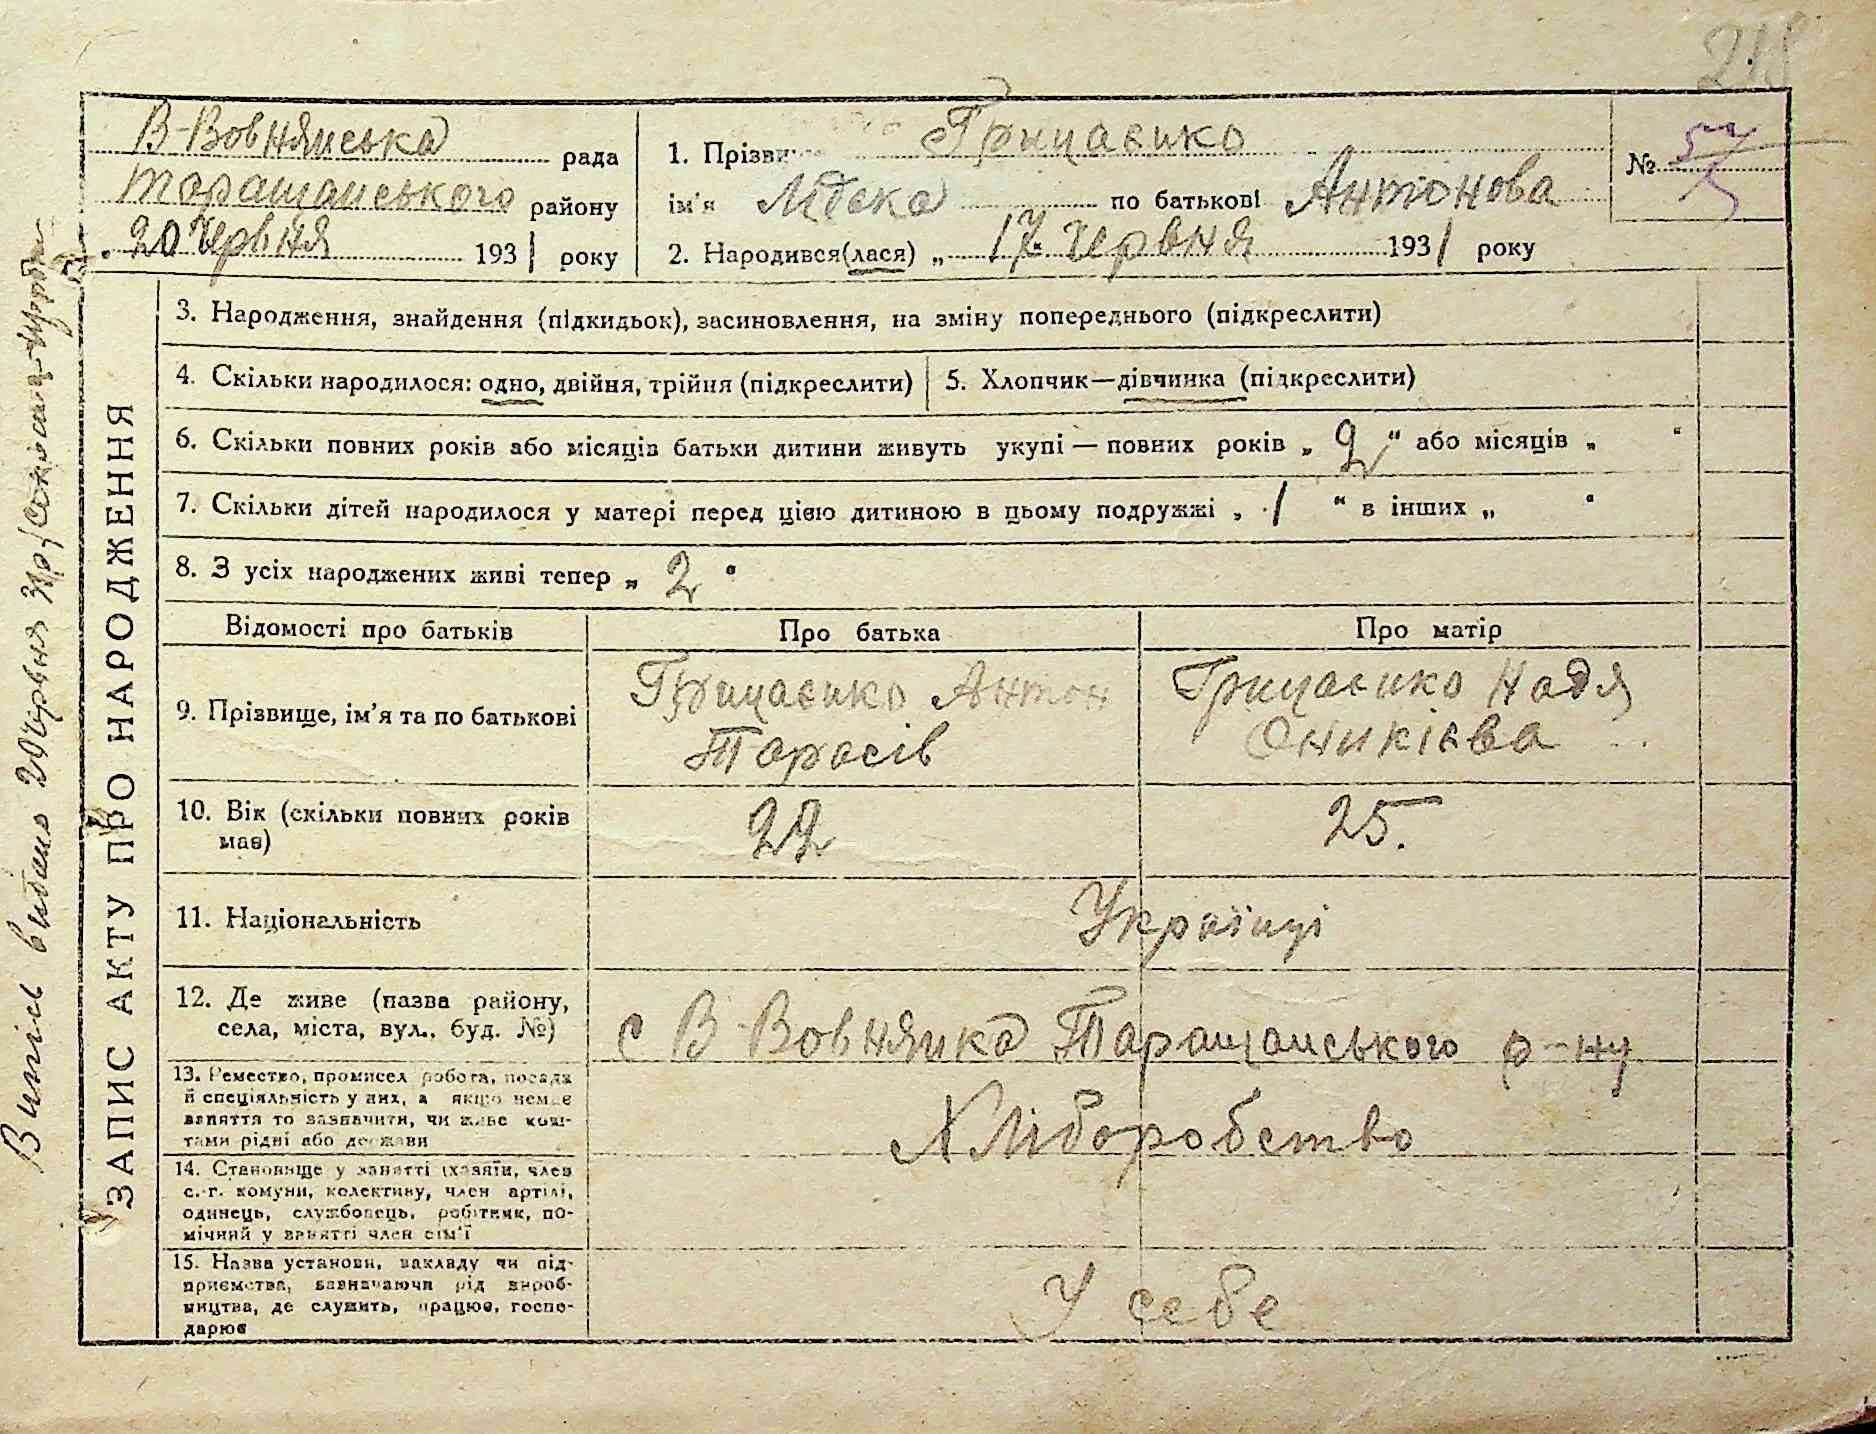 В-Вовнянська рада
Таращанського району
20 Червня 1931 року
1. Прізвище Грицаенко
ім'я по батькові Антонова
2. Народився(лася) „ 17 " Червня 1931 року
№ 57
ЗАПИС АКТУ ПРО НАРОДЖЕННЯ
3. Народження, знайдення (підкидьок), засиновлення, на зміну попереднього (підкреслити)
4. Скільки народилося: одно, двійня, трійня (підкреслити)
5. Хлопчик—дівчинка (підкреслити)
6. Скільки повних років або місяців батьки дитини живуть укупі — повних років „ 2 " або місяців „ "
7. Скільки дітей народилося у матері перед цією дитиною в цьому подружжі „ 1 " в інших „ "
8. З усіх народжених живі тепер „ 2 "
Відомості про батьків
Про батька
Про матір
9. Прізвище, ім'я та по батькові
Грицаенко Антон
Тарасів
Грицаенко Надя
Оникієва
10. Вік (скільки повних років
має)
22
25.
11. Національність
Українці
12. Де живе (назва району,
села, міста, вул., буд. №)
с В-Вовнянка Таращанського р-ну
13. Ремество, промисел робота, посада
й спеціяльність у них, а якщо немає
заняття то зазначити, чи живе кош-
тами рідні або держави
Хліборобство
14. Становище у занятті (хазяїн, член
с.-г. комуни, колективу, член артілі,
одинець, службовець, робітник, по-
мічний у занятті член сім'ї
15. Назва установи, закладу чи під-
приємства, зазначаючи рід вироб-
ництва, де служить, працює, госпо-
дарює
У себе
Випісь видано 20 Червня 31р